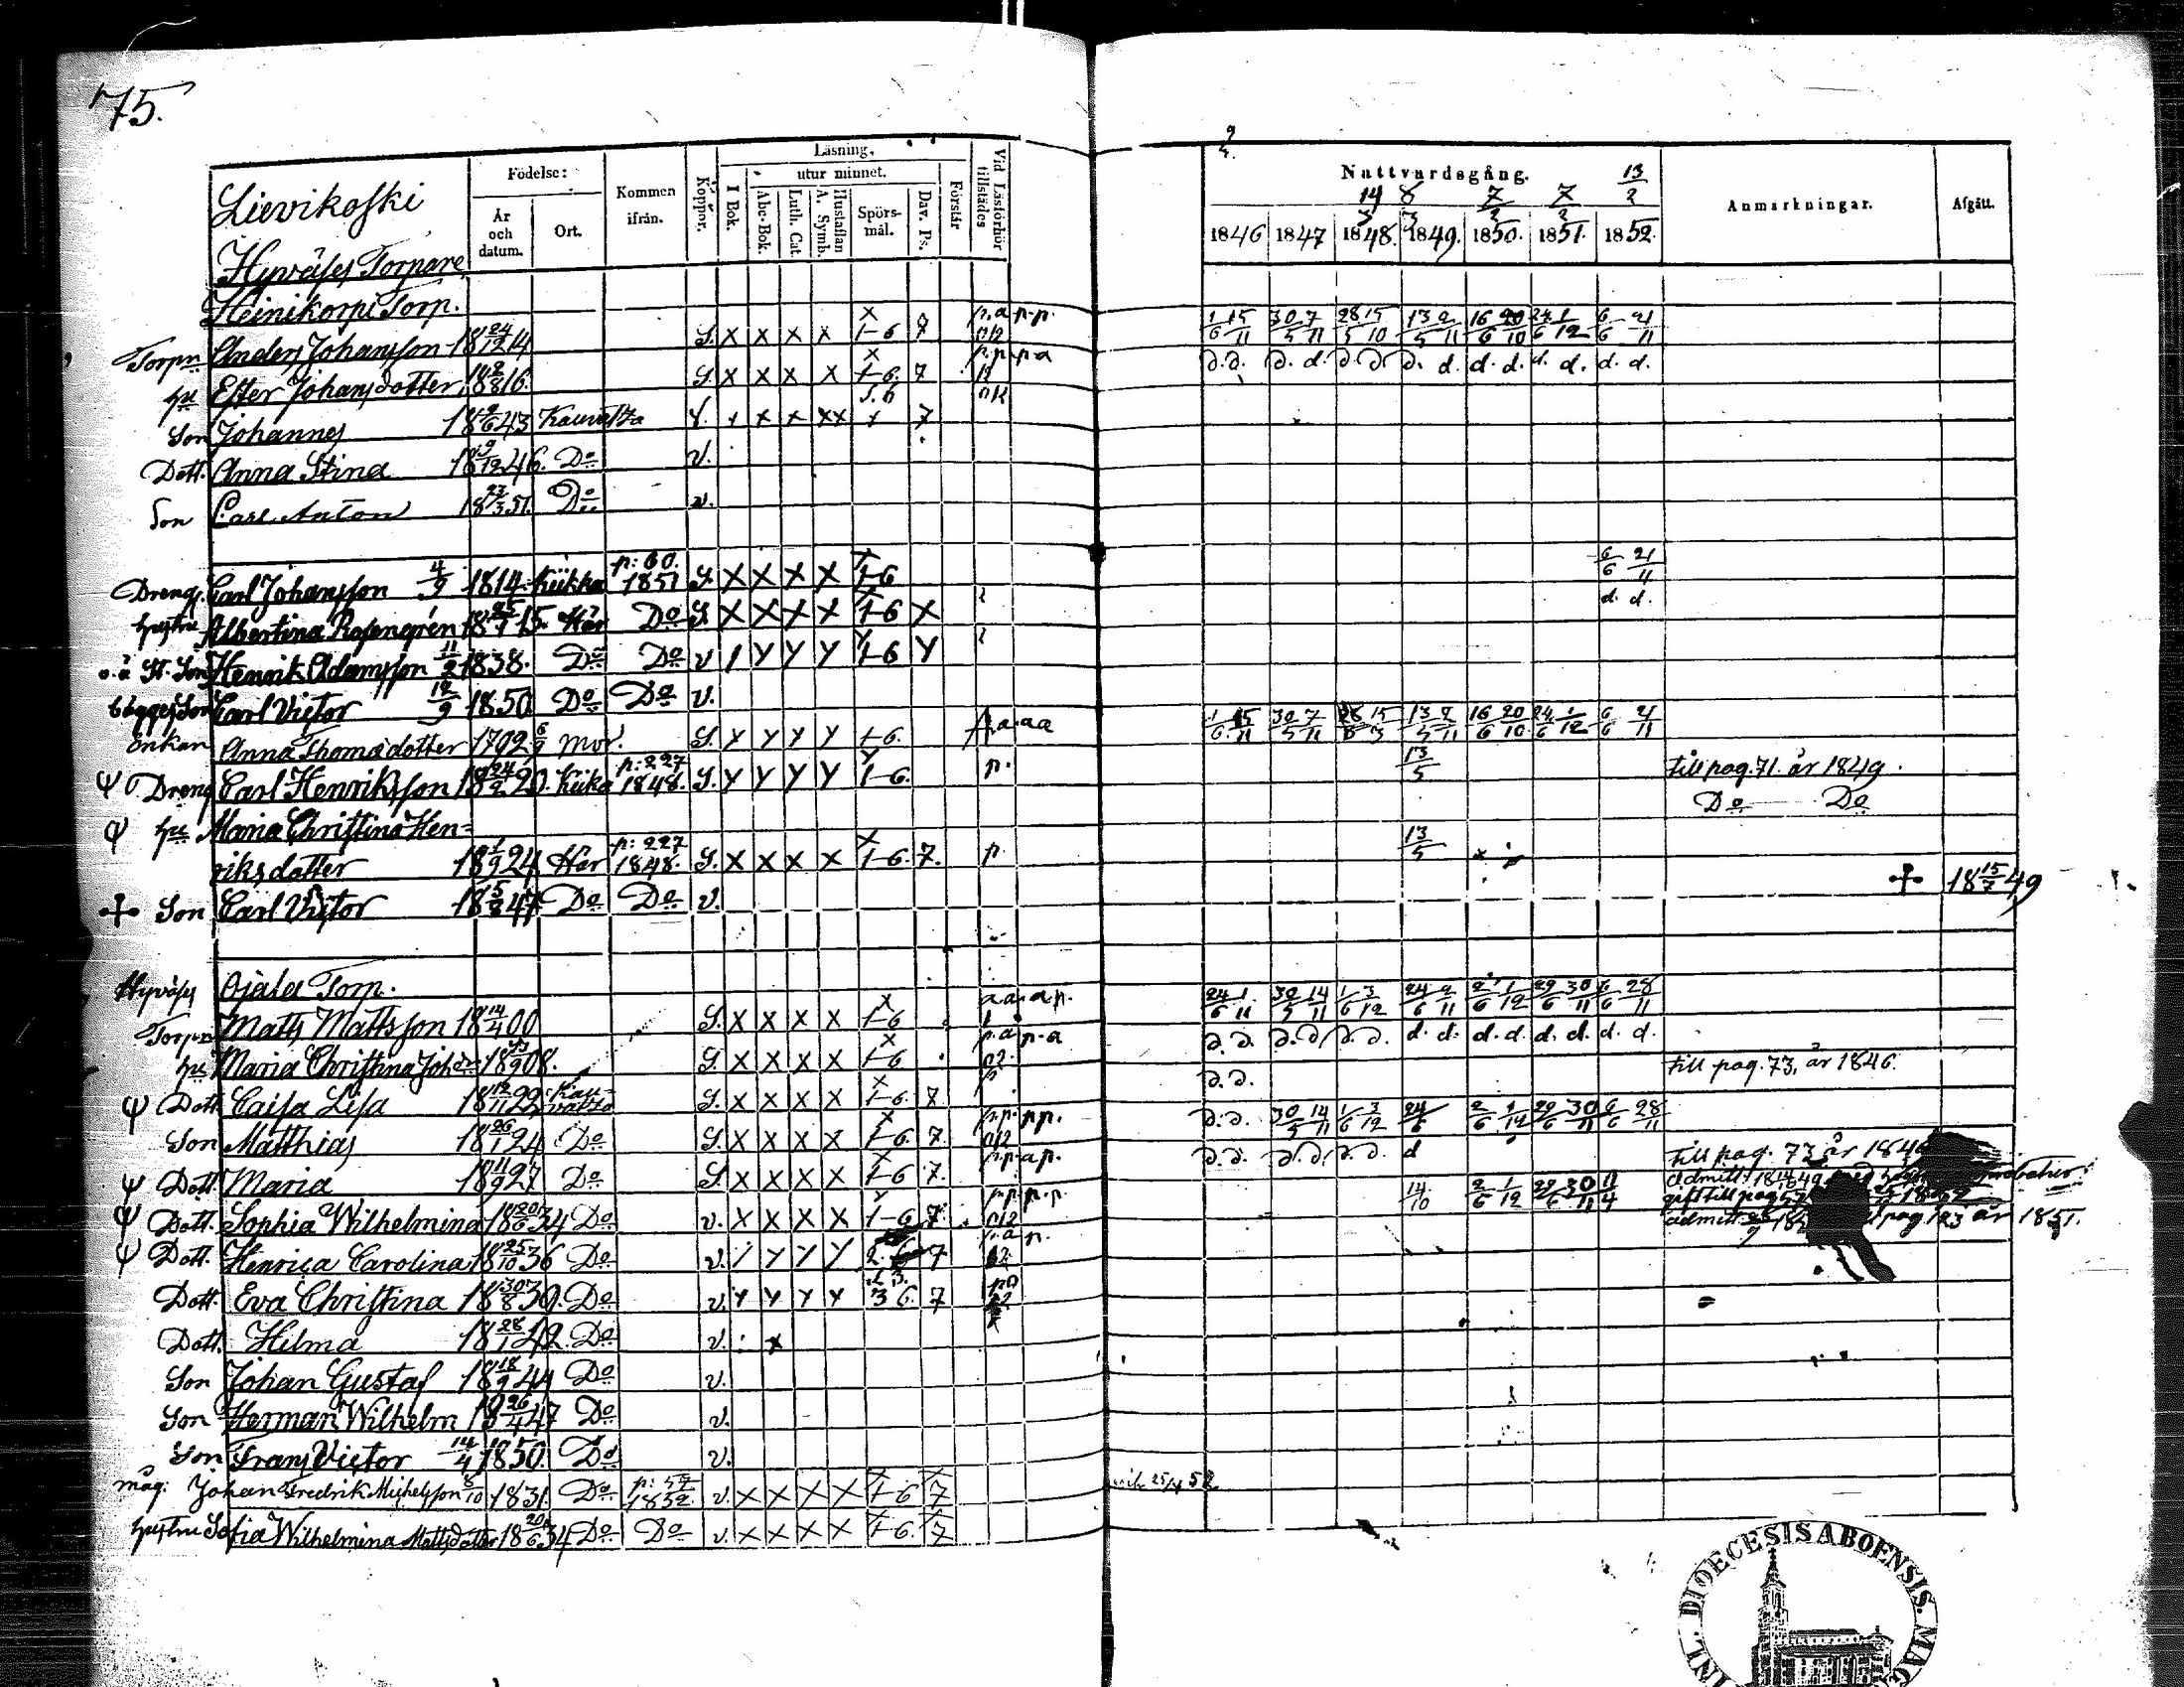 75.
Lievikoski
Hyväses Torpare
Födelse:
År och datum.
Ort.
Kommen ifrån.
Koppor.
Läsning.
I Bok.
utur minnet.
Abc-Bok.
Luth. Cat.
Hustaflan A. Symb.
Spörs-mål.
Dav. Ps.
Förstår
Vid Läsförhör tillstädes
Nattvardsgång.
14 8 7/2 7/2 13/2
1846 1847 1848. 1849. 1850. 1851. 1852.
Anmärkningar.
Afgått.
Heinikorpi Torp.
Torpn Anders Johansson 18 24/12 14 S. x x x x 1-6 7 1/6 15/11 30/5 7/11 28/5 15/10 13/5 2/11 16/6 20/10 24/6 1/12 6/6 21/11
hu Ester Johansdotter 1816. S. x x x x 1-6. 7 d. d. d. d. d. d. d. d. d. d. d. d. d. d.
Son Johannes 1843 x x x x x 7
Dott. Anna Stina 18 9/12 46. Do v.
Son Carl Anton 18 27/3 51. Do v.
Dreng. Carl Johansson 4/9 1814. Kiikka p: 60. 1851 S. x x x x 1-6 6/6 21/11
hustru Albertina Rosengrén 1815. Här Do S. x x x x 1-6 x d. d.
o. ä St. Son Henrik Adamsson 11/2 1838. Do Do v 1-6
bägges Son Carl Victor 12/9 1850 Do Do v.
Enkan Anna Thomasdotter 1792 mor. S. 1-6. 1/6 15/11 30/5 7/11 13/5 2/11 16/6 20/10 24/6 1/12 6/6 21/11
Dreng Carl Henriksson 1820. Kiika p: 227 1848. S. 1-6. p. 13/5 till pag. 71. år 1849.
hu Maria Christina Hen=
riksdotter 18 1/9 24 Här p: 227 1848. S. x x x x 1-6. 7. p. 13/5 Do Do
Son Carl Victor 1847 Do Do v. 18 15/7 49
Hyväses Ojala Torp.
Torpn Matts Mattsson 18 14/4 00 S. x x x x 1-6 24/6 1/11 30/5 14/11 1/6 3/12 24/6 2/11 2/6 1/12 29/6 30/11 6/6 28/11
hu Maria Christina Joh:dr 1808. S. x x x x 1-6 d. d. d. d. d. d. d. d. d. d. d. d. d. d.
Dott. Caisa Lisa 18 12/11 22 S. x x x x 1-6 7 d. d. till pag. 73, år 1846.
Son Matthias 18 26/1 24 Do S. x x x x 1-6 7. d. d. 30/5 14/11 1/6 3/12 24/6 2/6 1/12 29/6 30/11 6/6 28/11
Dott. Maria 18 11/9 27 Do S. x x x x 1-6 7. d. d. d. d. d. d. d till pag. 73 år
Dott. Sophia Wilhelmina 18 20/6 34 Do v. x x x x 1-6 7. 14/10 2/6 1/12 29/6 30/11 11/4 admitt. gift till pag
Dott. Henrica Carolina 18 25/10 36 Do v. 7 admitt. pag 123 år 1851.
Dott. Eva Christina 18 30/8 39. Do v. 3 6. 7
Dott. Hilma 18 28/1 42. Do v. x
Son Johan Gustaf 18 18/9 44 Do v.
Son Herman Wilhelm 18 26/4 47 Do v.
Son Frans Victor 14/4 1850. Do v.
måg. Johan Fredrik Michelsson 8/10 1831. Do p: 57 1852. v. x x x x 1-6 7
hustru Sofia Wilhelmina Mattsdotter 18 20/6 34 Do Do v. x x x x 1-6. 7
DIOECESIS ABOENSIS. MAG